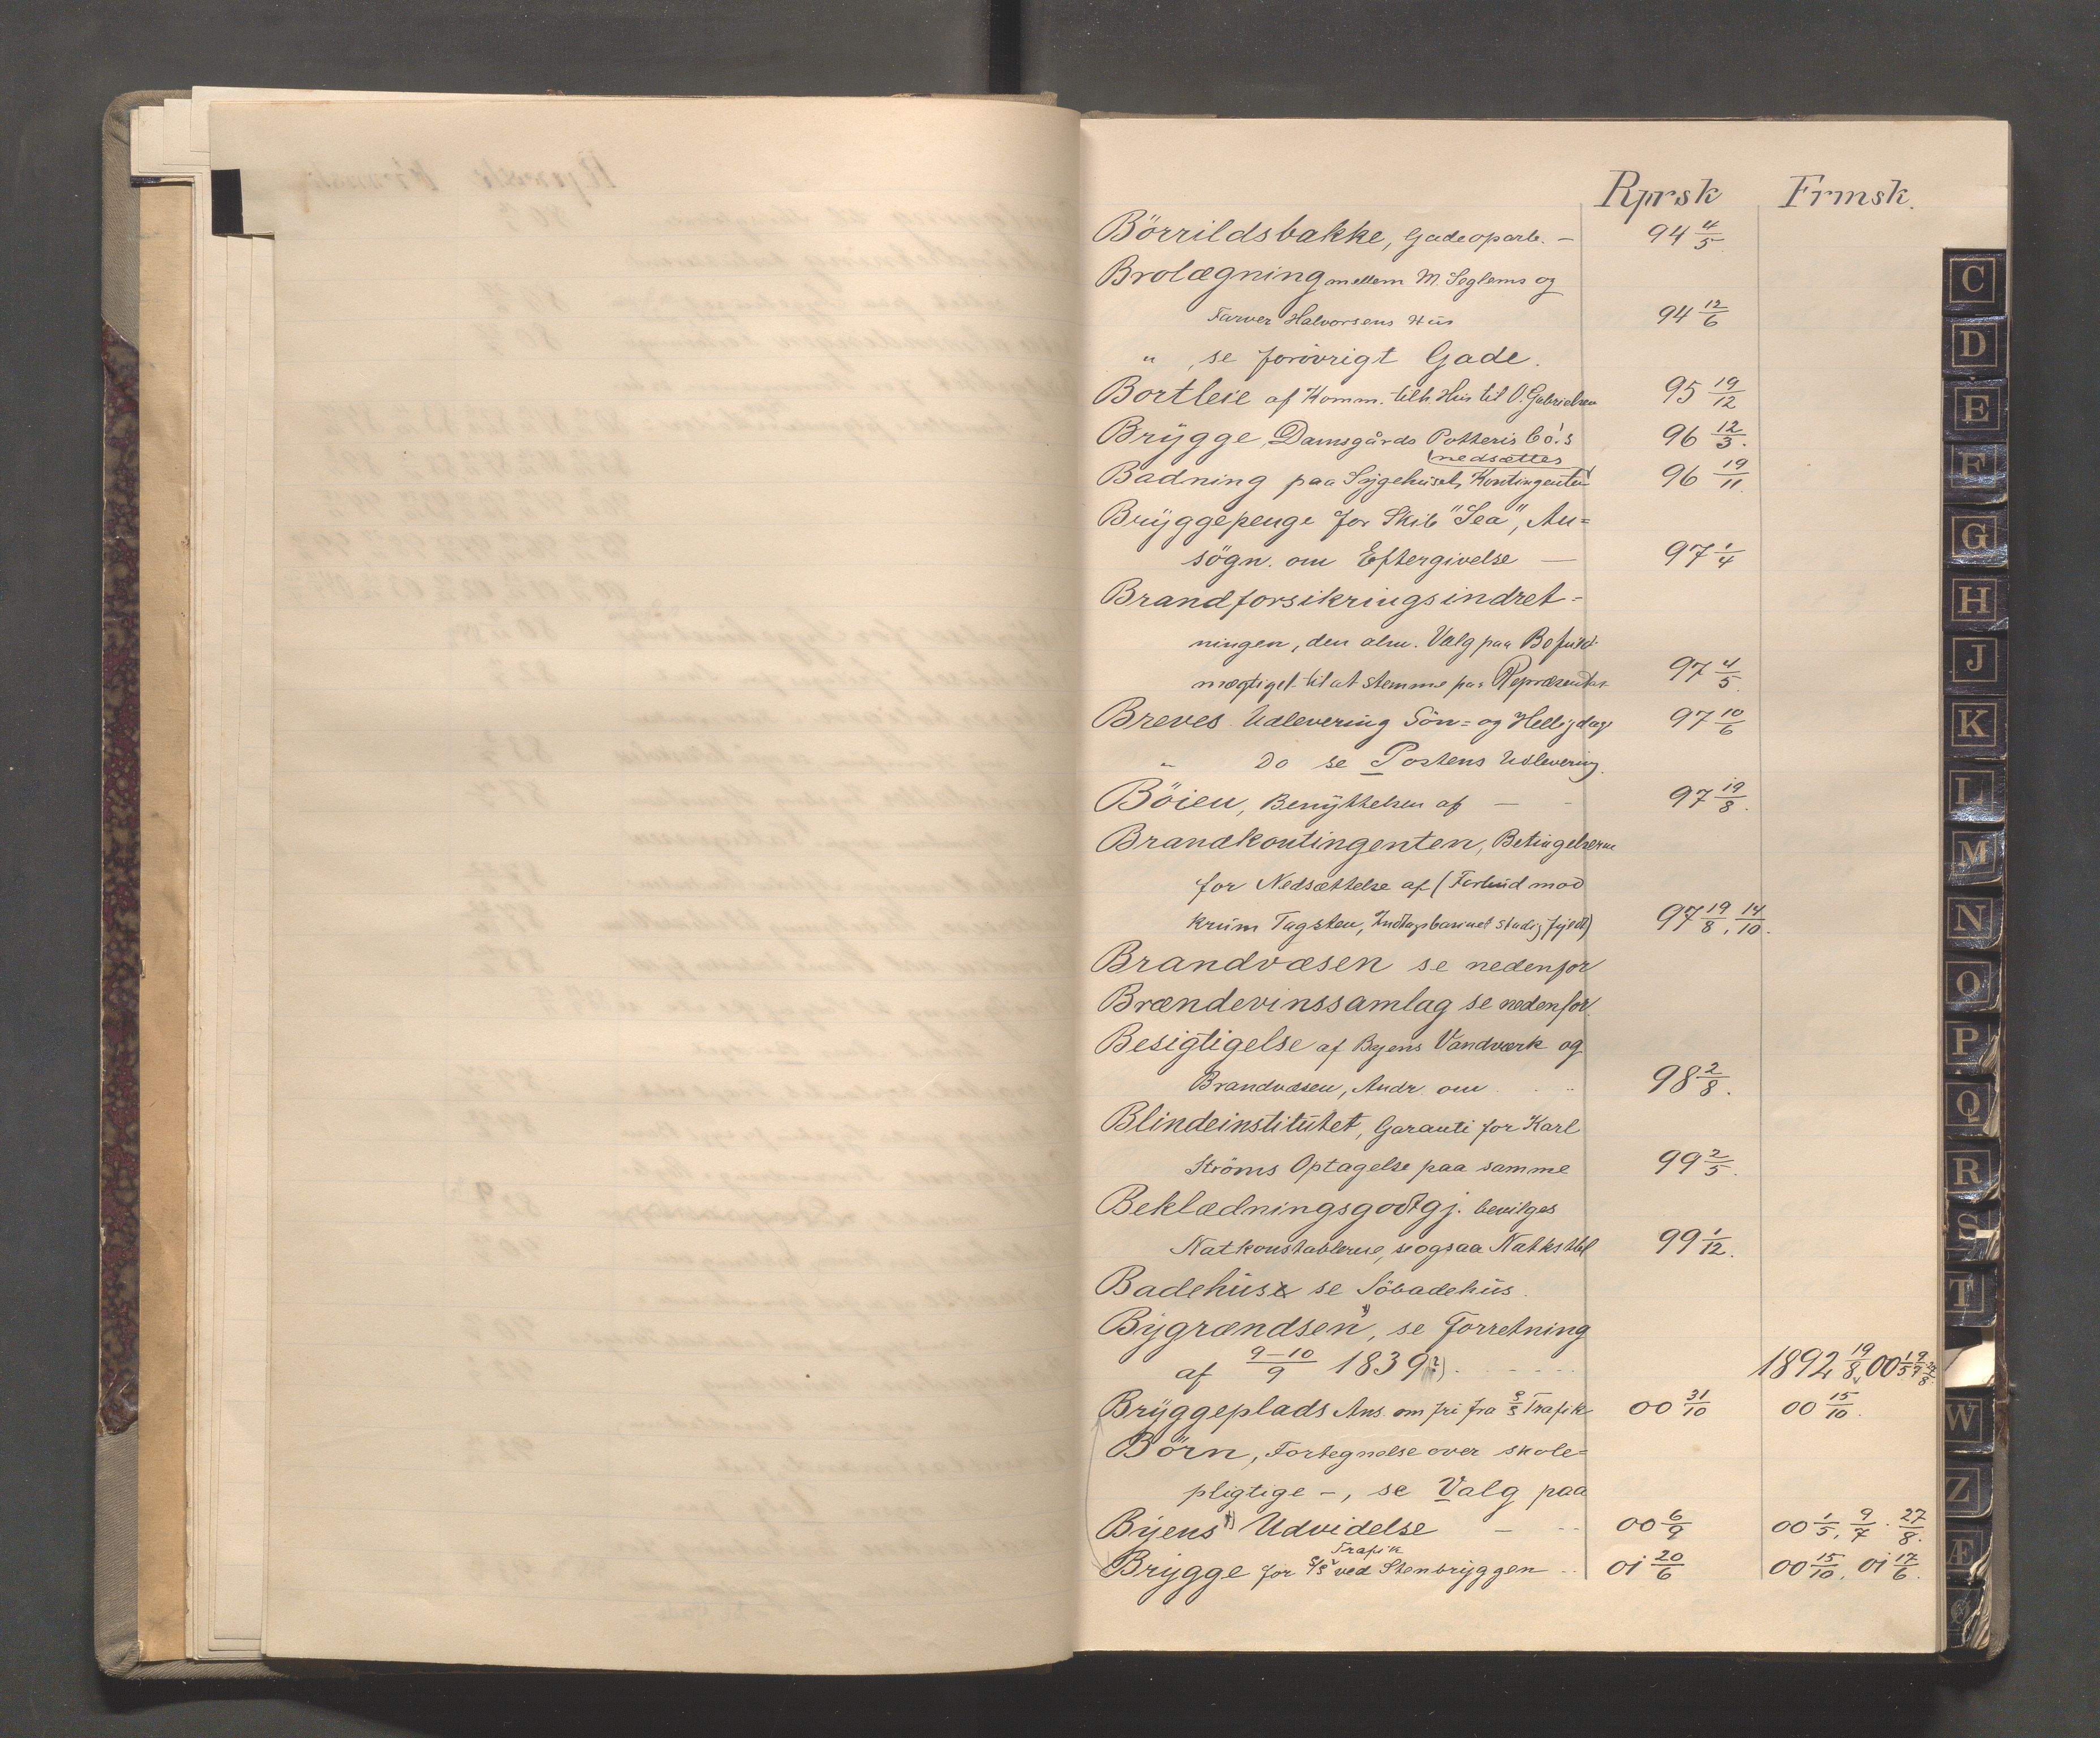 Rprsk Frmsk.
Börrildsbakke, Gadeoparb. — 94 4/5.
Brolægning mellem M. Seglems og
Farver Halvorsens Hus 94 12/6
" , se forövrigt Gade.
Bortleie af Komm. tilh. Hus til O. Gabrielsen 95 19/12
Brygge, Damsgårds Potteris Co's 96 12/3.
nedsættes
Badning paa Sygehuset, Kontingenten 96 19/11.
Bryggepenge for Skib "Sea", An=
sögn. om Eftergivelse — 97 1/4
Brandforsikringsindret=
ningen, den alm. Valg paa Befuld-
mægtiget til at stemme paa Repræsentant 97 4/5.
Breves Udlevering Sön= og Helligdage 97 10/6
" Do se Postens Udlevering.
Böien, Benyttelsen af — - 97 19/8.
Brandkontingenten, Betingelserne
for Nedsættelse af (Forbud mod
krum Tagsten, Indtagsbasinet stadig fyldt) 97 19/8, 14/10.
Brandvæsen se nedenfor
Brændevinssamlag se nedenfor.
Besigtigelse af Byens Vandværk og
Brandvæsen, Andr. om 98 2/8.
Blindeinstitutet, Garanti for Karl
Ströms Optagelse paa samme 99 2/5.
Beklædningsgodtgj. bevilges
Natkonstablerne, se ogsaa Natkstbl 99 1/12.
Badehus se Söbadehus.
Bygrændsen, se Forretning
af 9-10/9 1839(?) 1892 19/8, 00 1/5 9/7 27/8.
Bryggeplads Ans. om fri fra S/S Trafik 00 31/10 00 15/10.
Börn, Fortegnelse over skole=
pligtige —, se Valg paa
Byens Udvidelse — 00 6/9 00 1/5, 9/7. 27/8.
Trafik
Brygge for S/S ved Stenbryggen 01 20/6 00 15/10, 01 17/6.
C
D
E
F
G
H
J
K
L
M
N
O
P
Q
R
S
T
W
Z
Æ
Ø